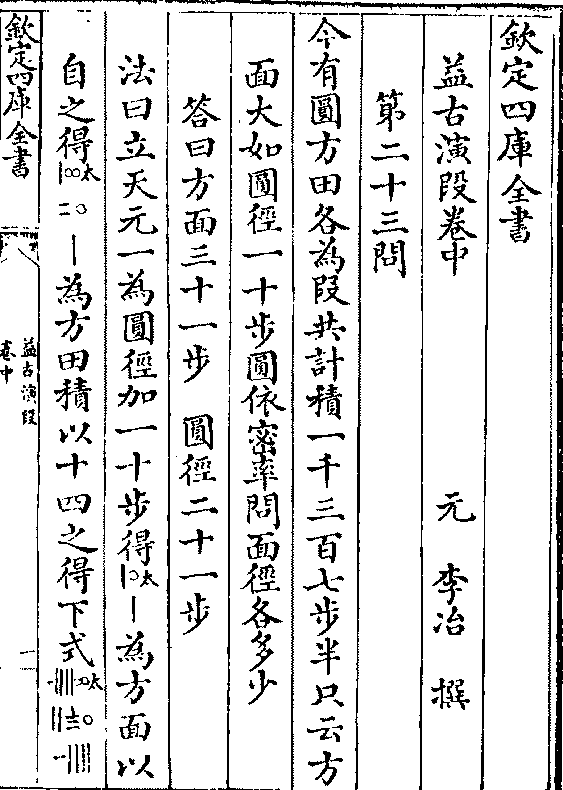 欽定四庫全書
益古演段卷中
元 李冶 撰
第二十三問
今有圓方田各為段共計積一千三百七步半只云方
面大如圓徑一十步圓依密率問面徑各多少
答曰方面三十一步 圓徑二十一步
法曰立天元一為圓徑加一十步得〡〇太〡為方面以
自之得〡〇〇太二〇〡為方田積以十四之得下式
欽定四庫全書
益古演段
卷中
一